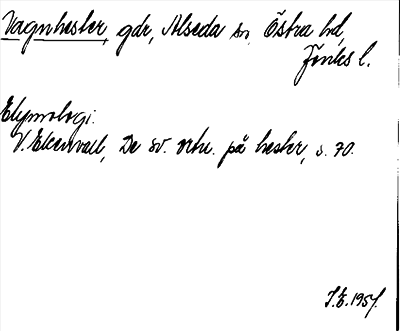 Vagnhester, gdr, Alseda sn, Östra hd,
Jönkes l.
Etymologi:
V. Ekenvall, De sv. ortn. på hester, s. 70.
I.E. 1957.